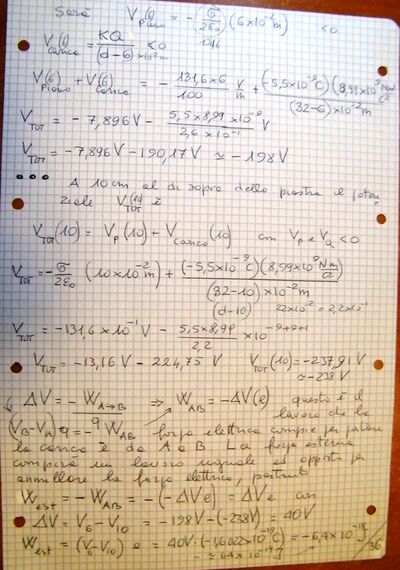 Sarà V_piano(6) = -(σ/2ε₀)(6×10⁻²m) <0
V_carica(6) = KQ/(d-6)×10⁻²m <0
V_piano(6) + V_carica(6) = - 131,6×6/100 V/m m + (-5,5×10⁻⁹C)(8,99×10⁹ Nm²/C²)/(32-6)×10⁻²m
V_TOT = -7,896 V - 5,5×8,99×10⁻⁹⁺⁹/2,6×10⁻¹ V
V_TOT = -7,896V - 190,17V ≃ -198V
A 10cm al di sopra della piastra il poten
ziale V_TOT(10) è
V_TOT(10) = V_P(10) + V_carica(10) con V_P e V_Q <0
V_TOT = -σ/2ε₀ (10×10⁻²m) + (-5,5×10⁻⁹C)(8,99×10⁹ Nm²/C²)/(32-10)×10⁻²m
(d-10) 22×10⁻² = 2,2×10⁻¹
V_TOT = -131,6×10⁻¹V - 5,5×8,99/2,2 ×10⁻⁹⁺⁹⁺¹
V_TOT = -13,16V - 224,75 V V_TOT(10) = -237,91V
≃ -238V
ΔV = -W_A→B ⇒ W_AB = -ΔV(e) questo è il
lavoro che la
(V_B-V_A)q = -W_AB forza elettrica compie per portare
la carica e da A a B. La forza esterna
compirà un lavoro uguale ed opposto per
annullare la forza elettrica, pertanto
W_est = -W_AB = -(-ΔVe) = ΔVe con
ΔV = V₆-V₁₀ = -198V-(-238V) = 40V
W_est = (V₆-V₁₀) e = 40V·(-1,6022×10⁻¹⁹C) = -6,4×10⁻¹⁸J
≃ -64×10⁻¹⁹J
36